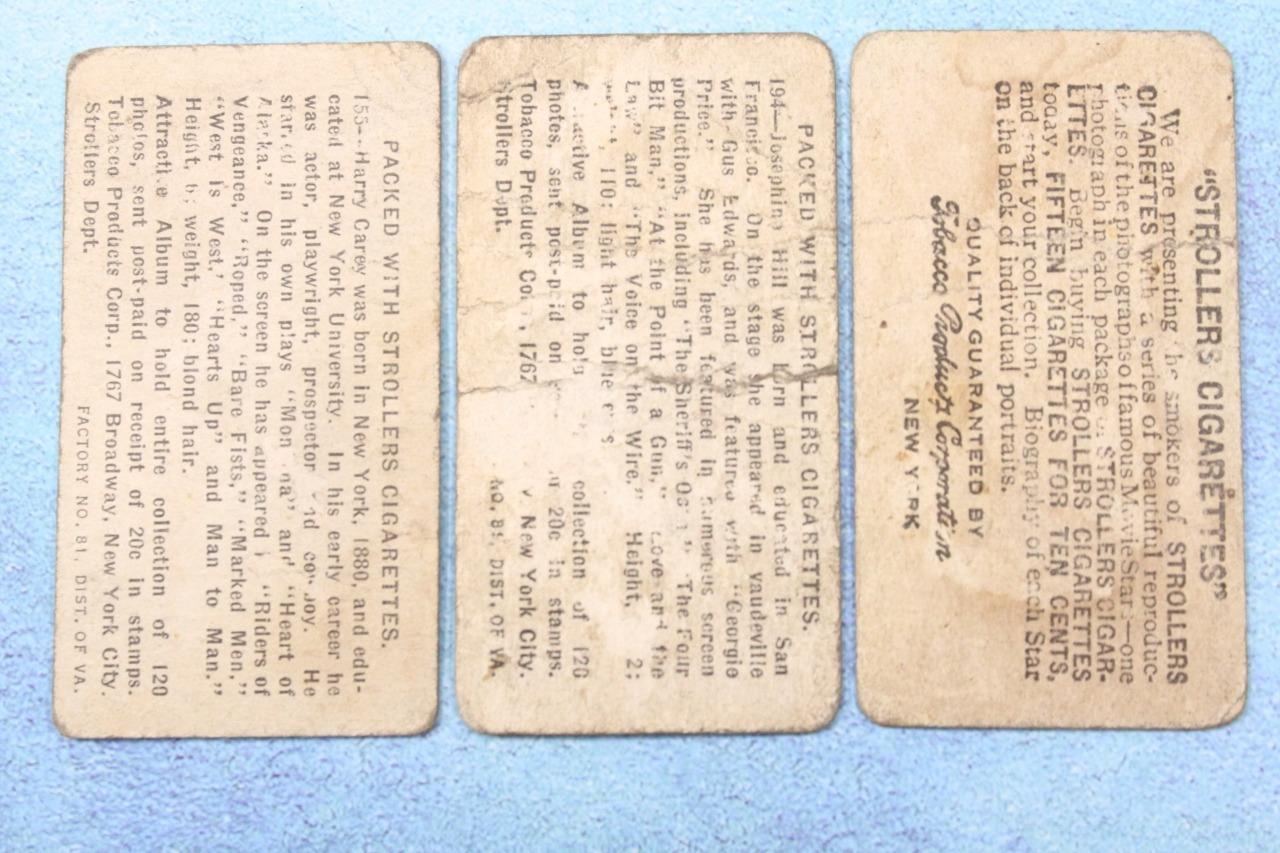 PACKED WITH STROLLERS CIGARETTES.
155--Harry Carey was born in New York, 1880, and edu-
cated at New York University. In his early career he
was actor, playwright, prospector and cowboy. He
starred in his own plays "Montana" and "Heart of
Alaska." On the screen he has appeared in "Riders of
Vengeance," "Roped," "Bare Fists," "Marked Men,"
"West is West," "Hearts Up" and Man to Man."
Height, 6; weight, 180; blond hair.
Attractive Album to hold entire collection of 120
photos, sent post-paid on receipt of 20c in stamps.
Tobacco Products Corp., 1767 Broadway, New York City.
Strollers Dept.
FACTORY NO. 81, DIST. OF VA.
PACKED WITH STROLLERS CIGARETTES.
194—Josephine Hill was born and educated in San
Francisco. On the stage she appeared in vaudeville
with Gus Edwards, and was featured with "Georgie
Price." She has been featured in numerous screen
productions, including "The Sheriff's "The Four
Bit Man," "At the Point of a Gun," "Love and the
Law" and "The Voice on the Wire." Height, 2;
110; light hair, blue eyes
Attractive Album to hold collection of 120
photos, sent post-paid on 20c in stamps.
Tobacco Products Co 1767 New York City.
Strollers Dept. NO. 81, DIST. OF VA.
"STROLLERS CIGARETTES"
We are presenting the smokers of STROLLERS
CIGARETTES with a series of beautiful reproduc-
tions of the photographs of famous Movie Stars—one
photograph in each package of STROLLERS CIGAR-
ETTES. Begin buying STROLLERS CIGARETTES
today, FIFTEEN CIGARETTES FOR TEN CENTS,
and start your collection. Biography of each Star
on the back of individual portraits.
QUALITY GUARANTEED BY
Tobacco Products Corporation
NEW YORK